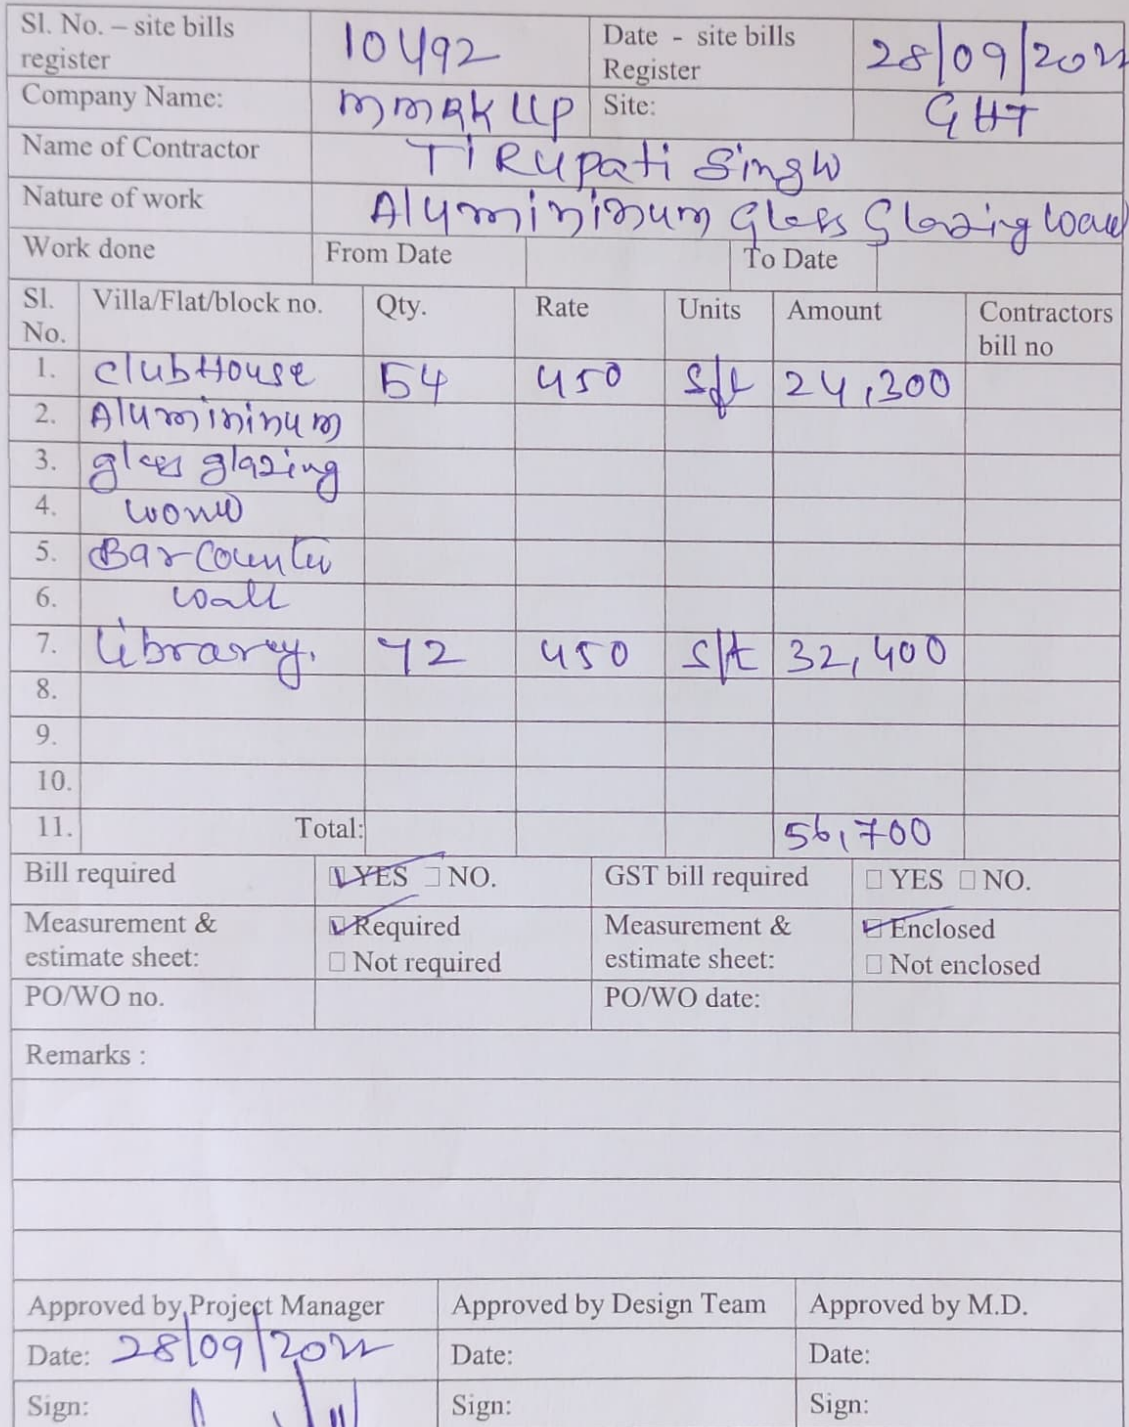 Sl. No. – site bills register 10492 Date - site bills Register 28/09/2022
Company Name: MMRK LLP Site: GHT
Name of Contractor TIRUpati Singh
Nature of work Alumininum Glass Glazing
Work done From Date To Date
Sl. No. Villa/Flat/block no. Qty. Rate Units Amount Contractors bill no
1. ClubHouse 54 450 Sft 24,300
2. Alumininum
3. glass glazing
4. work
5. Bar Counter
6. wall
7. library. 72 450 Sft 32,400
8.
9.
10.
11. Total: 56,700
Bill required YES NO. GST bill required YES NO.
Measurement & estimate sheet: Required Not required Measurement & estimate sheet: Enclosed Not enclosed
PO/WO no. PO/WO date:
Remarks :
Approved by Project Manager Approved by Design Team Approved by M.D.
Date: 28/09/2022 Date: Date:
Sign: Sign: Sign: